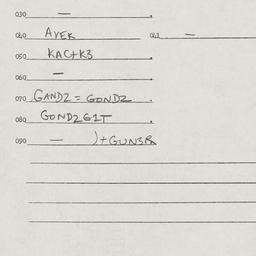 030 — .
040 AYEK 042 —
050 KAC+K3 .
060 — .
070 GAND2 = GOND2 .
080 GOND2G1T .
090 — )+GUN3R